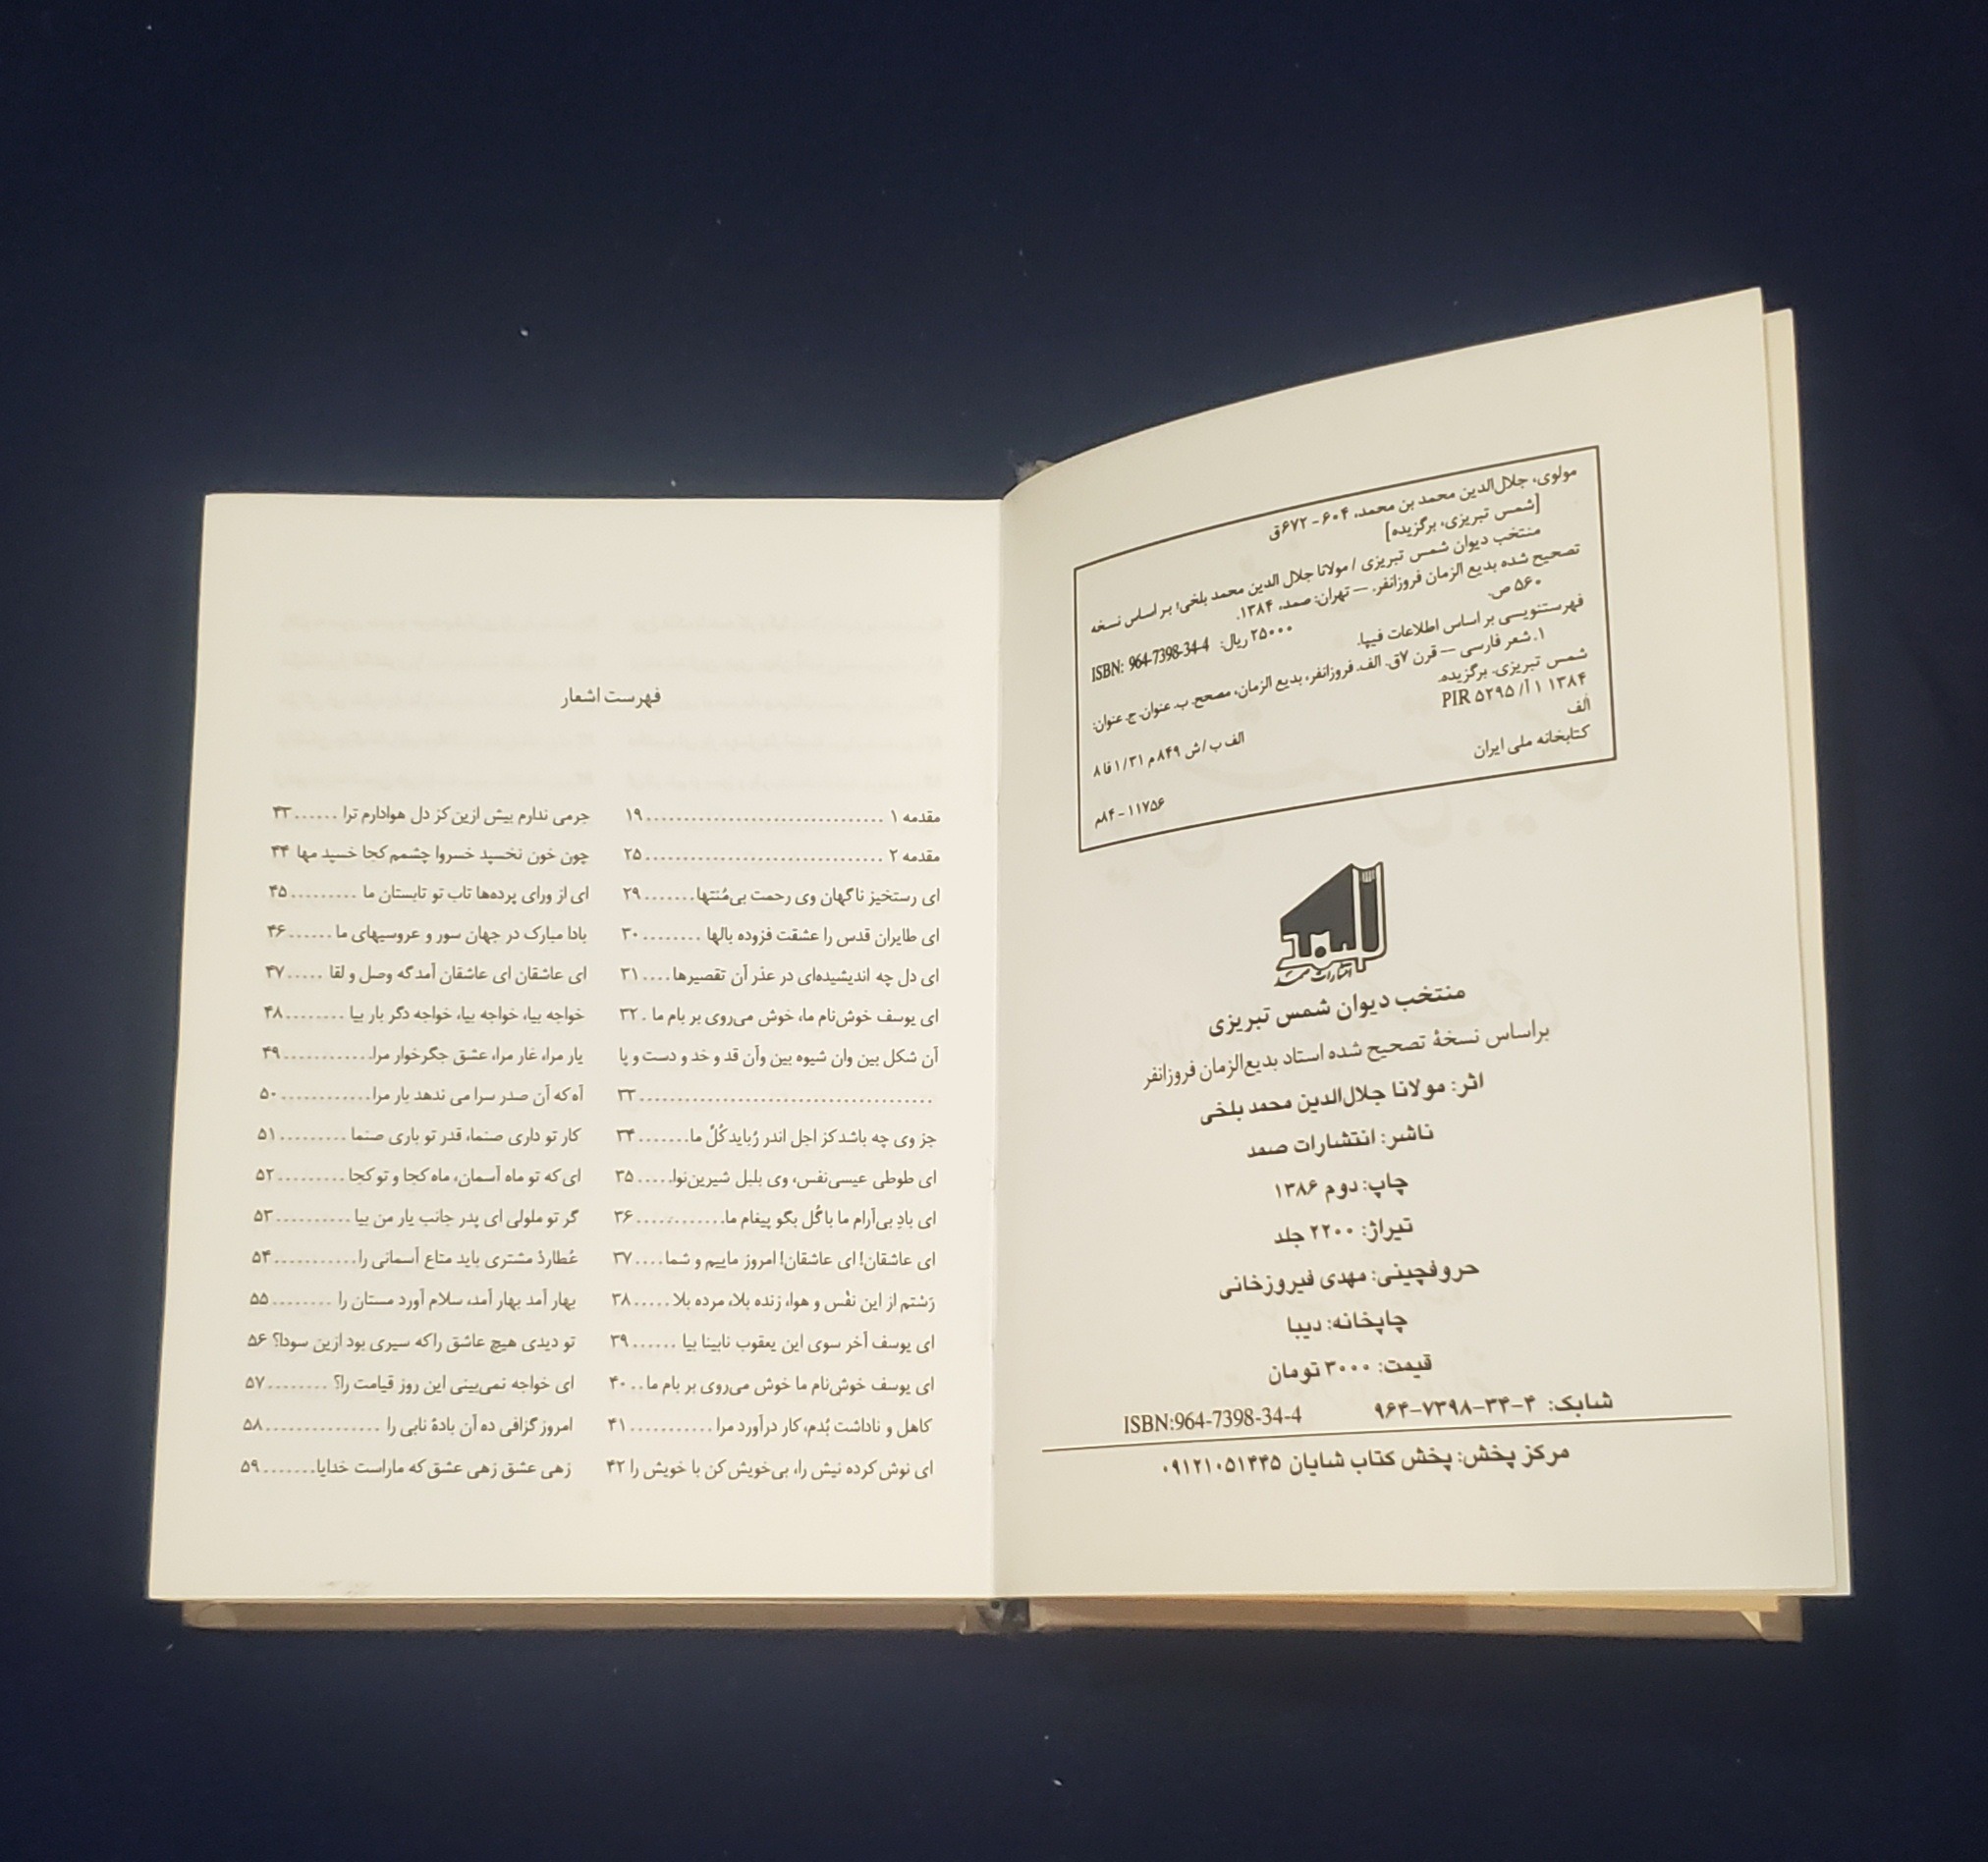 مولوی، جلال‌الدین محمد بن محمد، ۶۰۴ - ۶۷۲ق
[شمس تبریزی، برگزیده]
منتخب دیوان شمس تبریزی / مولانا جلال الدین محمد بلخی؛ بر اساس نسخه
تصحیح شده بدیع الزمان فروزانفر. — تهران: صمد، ۱۳۸۴.
۵۶۰ ص.
ISBN: 964-7398-34-4 ۲۵۰۰۰ ریال:
فهرستنویسی بر اساس اطلاعات فیپا.
۱. شعر فارسی — قرن ۷ق. الف. فروزانفر، بدیع الزمان، مصحح. ب. عنوان. ج. عنوان:
شمس تبریزی. برگزیده.
PIR ۵۲۹۵ /آ ۱ ۱۳۸۴
الف
الف ب /ش ۸۴۹ م ۱/۳۱ فا ۸
کتابخانه ملی ایران
۱۱۷۵۶ - ۸۴م
انتشارات صمد
منتخب دیوان شمس تبریزی
براساس نسخهٔ تصحیح شده استاد بدیع‌الزمان فروزانفر
اثر: مولانا جلال‌الدین محمد بلخی
ناشر: انتشارات صمد
چاپ: دوم ۱۳۸۶
تیراژ: ۲۲۰۰ جلد
حروفچینی: مهدی فیروزخانی
چاپخانه: دیبا
قیمت: ۳۰۰۰ تومان
شابک: ۴-۳۴-۷۳۹۸-۹۶۴ ISBN:964-7398-34-4
مرکز پخش: پخش کتاب شایان ۰۹۱۲۱۰۵۱۴۴۵
فهرست اشعار
مقدمه ۱ ................................ ۱۹
مقدمه ۲ ................................ ۲۵
ای رستخیز ناگهان وی رحمت بی‌مُنتها....... ۲۹
ای طایران قدس را عشقت فزوده بالها ........ ۳۰
ای دل چه اندیشیده‌ای در عذر آن تقصیرها .... ۳۱
ای یوسف خوش‌نام ما، خوش می‌روی بر بام ما . ۳۲
آن شکل بین وان شیوه بین وآن قد و خد و دست و پا
....................................... ۳۳
جز وی چه باشد کز اجل اندر رُباید کُلّ ما....... ۳۴
ای طوطی عیسی‌نفس، وی بلبل شیرین‌نوا..... ۳۵
ای بادِ بی‌آرام ما با گُل بگو پیغام ما............ ۳۶
ای عاشقان! ای عاشقان! امروز ماییم و شما .... ۳۷
رَستم از این نفْس و هوا، زنده بلا، مرده بلا ..... ۳۸
ای یوسف آخر سوی این یعقوب نابینا بیا ...... ۳۹
ای یوسف خوش‌نام ما خوش می‌روی بر بام ما.. ۴۰
کاهل و ناداشت بُدم، کار درآورد مرا ........... ۴۱
ای نوش کرده نیش را، بی‌خویش کن با خویش را ۴۲
جرمی ندارم بیش ازین کز دل هوادارم ترا ...... ۴۳
چون خون نخسپد خسروا چشمم کجا خسپد مها ۴۴
ای از ورای پرده‌ها تاب تو تابستان ما ......... ۴۵
بادا مبارک در جهان سور و عروسیهای ما ...... ۴۶
ای عاشقان ای عاشقان آمد گه وصل و لقا ..... ۴۷
خواجه بیا، خواجه بیا، خواجه دگر بار بیا ........ ۴۸
یار مرا، غار مرا، عشق جگرخوار مرا............ ۴۹
آه که آن صدر سرا می ندهد بار مرا............ ۵۰
کار تو داری صنما، قدر تو باری صنما ......... ۵۱
ای که تو ماه آسمان، ماه کجا و تو کجا ......... ۵۲
گر تو ملولی ای پدر جانب یار من بیا .......... ۵۳
عُطاردْ مشتری باید متاع آسمانی را........... ۵۴
بهار آمد بهار آمد، سلام آورد مستان را ........ ۵۵
تو دیدی هیچ عاشق را که سیری بود ازین سودا؟ ۵۶
ای خواجه نمی‌بینی این روز قیامت را؟ ........ ۵۷
امروز گزافی ده آن بادهٔ نابی را ............... ۵۸
زهی عشق زهی عشق که ماراست خدایا....... ۵۹